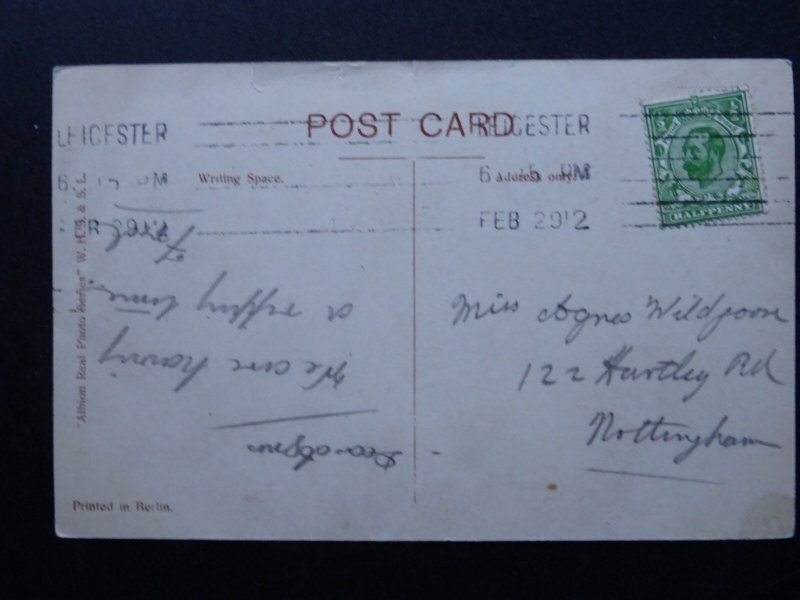 POST CARD
LEICESTER
LEICESTER
Writing Space.
Address only.
6 15 PM
6 15 PM
FEB 29 12
FEB 29 12
HALFPENNY
"Albion Real Photo Series" W. H. S. & S. L.
Dear Agnes
We are having
a ripping time
Fred
Miss Agnes Wildgoose
122 Hartley Rd
Nottingham
Printed in Berlin.